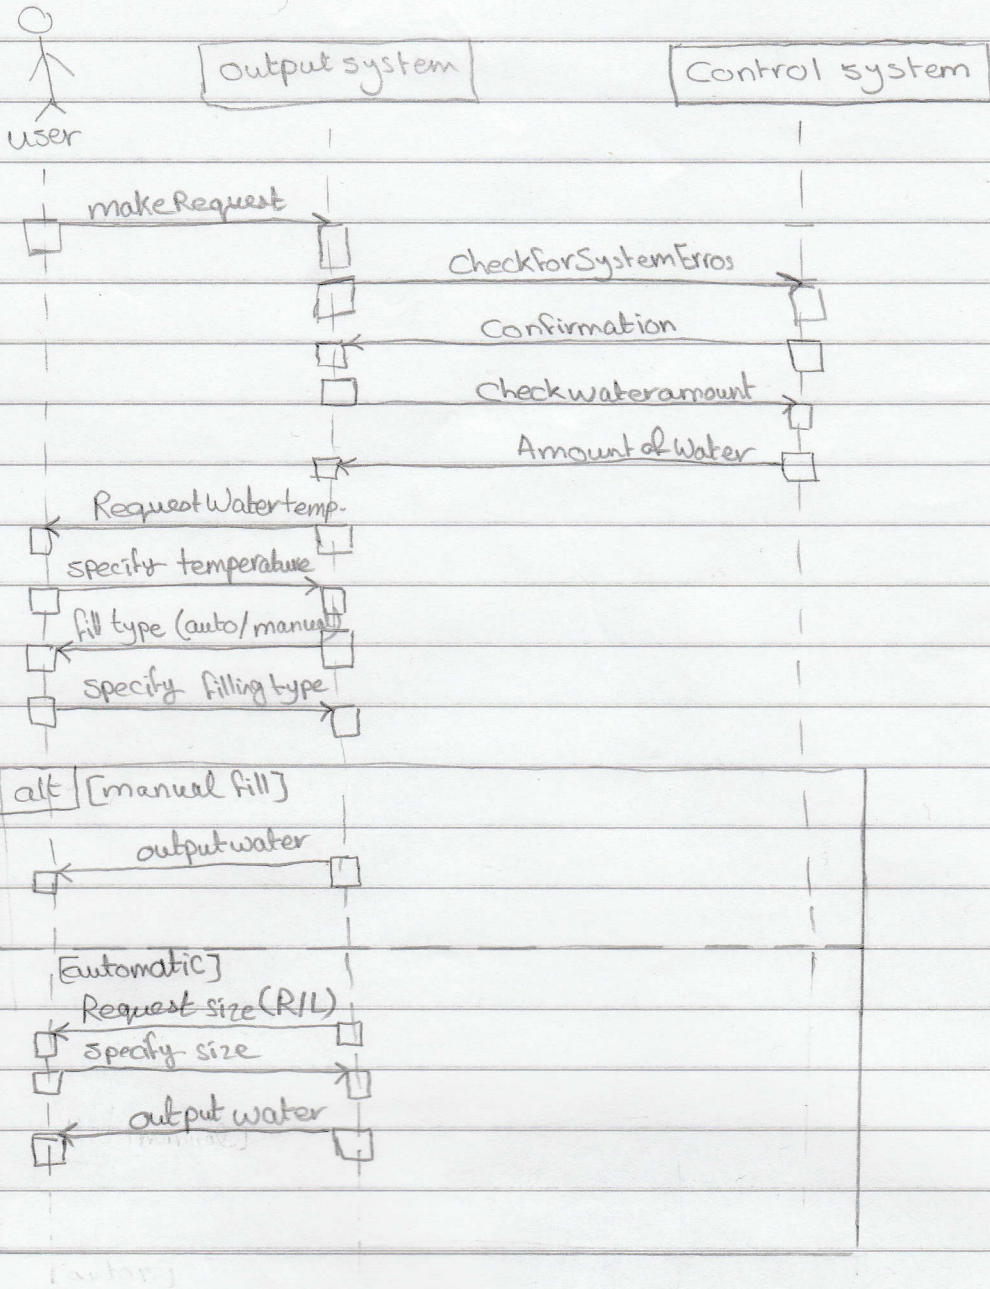 output system
Control system
user
makeRequest
CheckforSystemErros
Confirmation
Checkwateramount
AmountofWater
RequestWatertemp.
specify temperature
fill type (auto/manual)
specify filling type
alt [manual fill]
outputwater
[automatic]
Request size (R/L)
specify size
output water